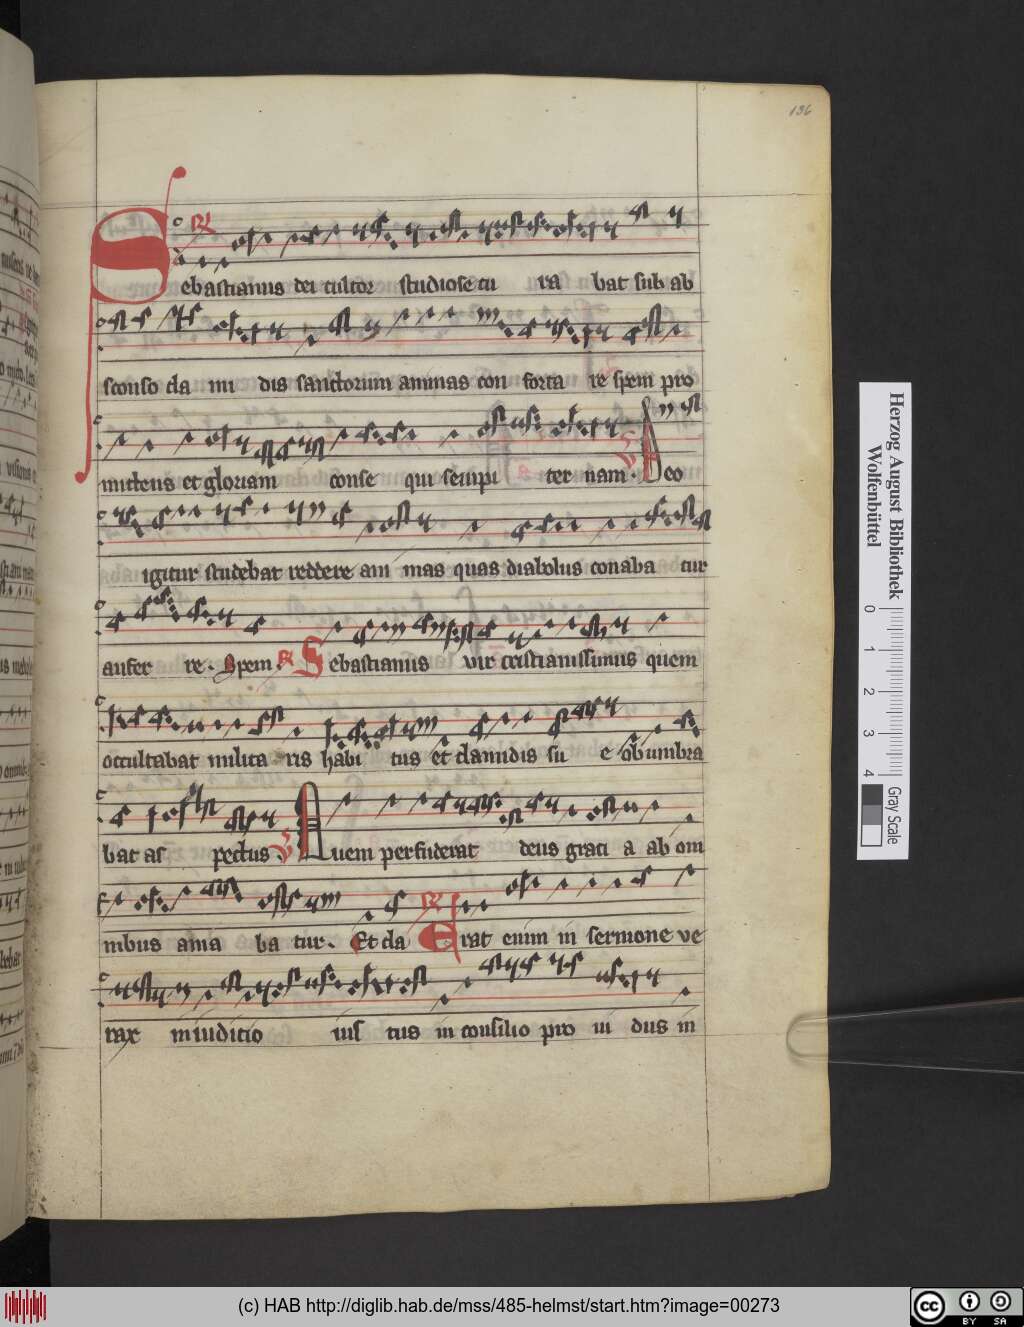 136
Sebastianus dei cultor studiose cu ra bat sub ab
sconso cla mi dis sanctorum animas con forta re spem pro
mittens et gloriam conse qui sempi ter nam. V Deo
igitur studebat reddere ani mas quas diabolus conaba tur
aufer re. Spem. R Sebastianus vir cristianissimus quem
occultabat milita ris habi tus et clamidis su e obumbra
bat as pectus. V Quem perfuderat deus grati a ab om
nibus ama ba tur. Et cla R Erat enim in sermone ve
rax in iuditio ius tus in consilio pro ui dus in
Herzog August Bibliothek
Wolfenbüttel
0 1 2 3 4
Gray Scale
(c) HAB http://diglib.hab.de/mss/485-helmst/start.htm?image=00273
cc BY SA